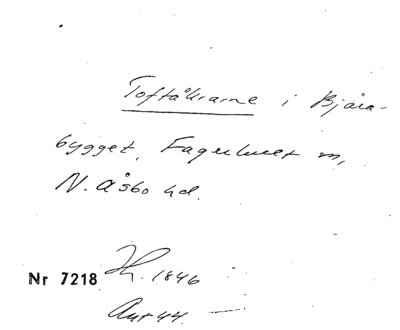 Toftåkrarne i Bjära-
bygget, Fagerhult sn,
N. Åsbo hd.
Nr 7218 Hk. 1846
Ant 44.